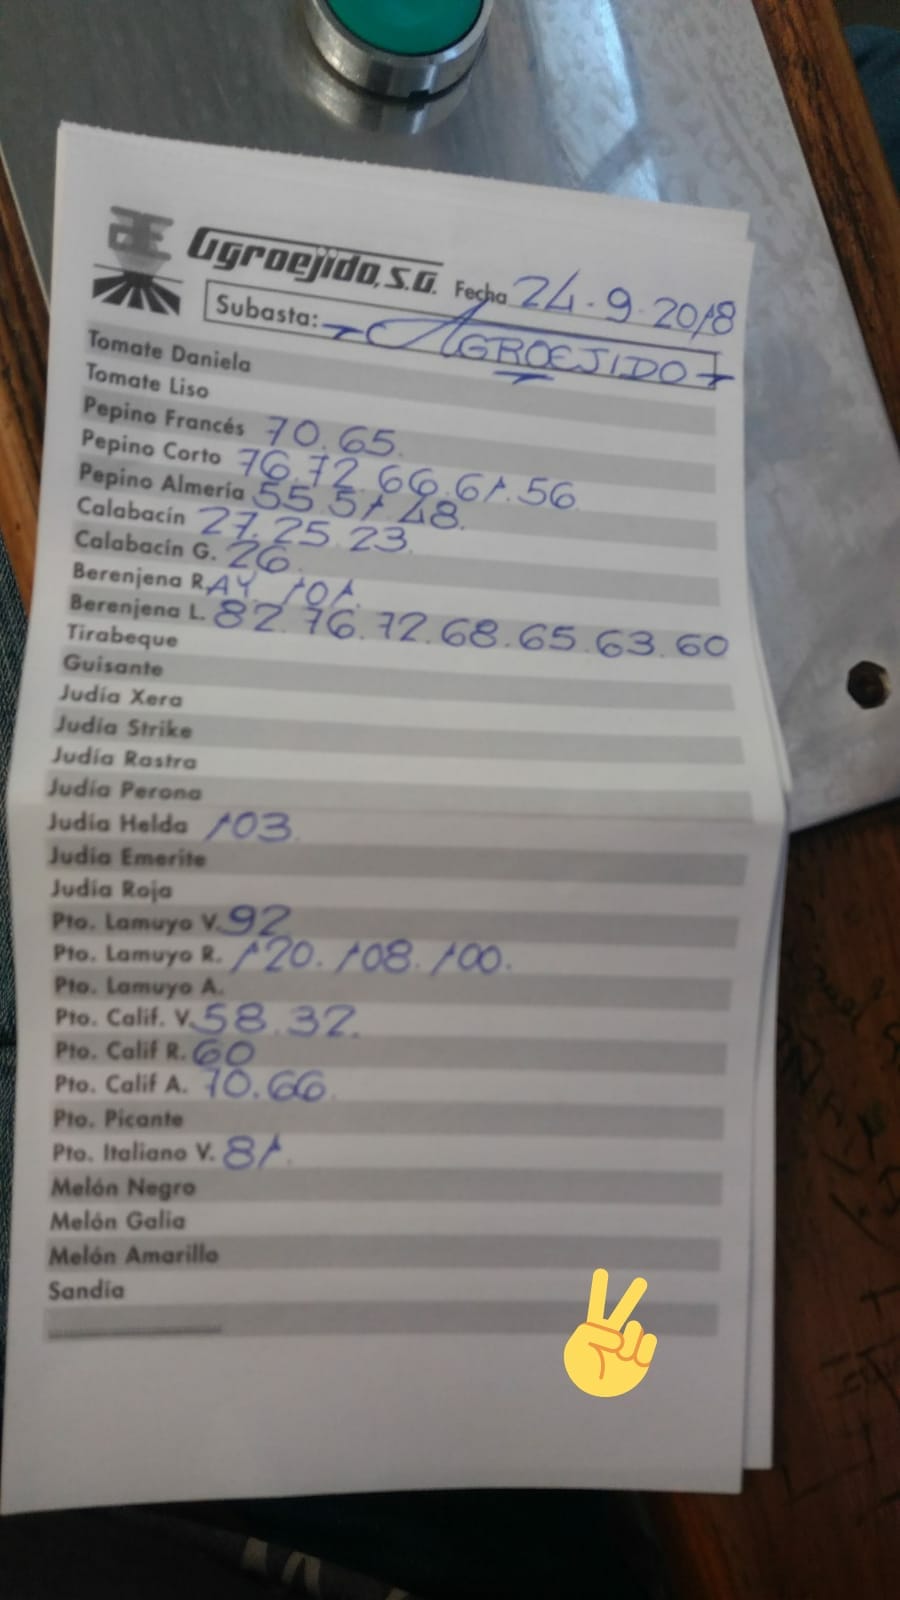 Agroejido, S.A. Fecha 24.9.2018
Subasta: AGROEJIDO
Tomate Daniela
Tomate Liso
Pepino Francés 70.65.
Pepino Corto 76.72.66.61.56
Pepino Almería 55.51.48.
Calabacín 27.25.23.
Calabacín G. 26.
Berenjena R. AY. 101.
Berenjena L. 82.76.72.68.65.63.60
Tirabeque
Guisante
Judía Xera
Judía Strike
Judía Rastra
Judía Perona
Judía Helda 103.
Judía Emerite
Judía Roja
Pto. Lamuyo V. 92
Pto. Lamuyo R. 120.108.100.
Pto. Lamuyo A.
Pto. Calif. V. 58.32.
Pto. Calif R. 60
Pto. Calif A. 70.66.
Pto. Picante
Pto. Italiano V. 81.
Melón Negro
Melón Galia
Melón Amarillo
Sandía